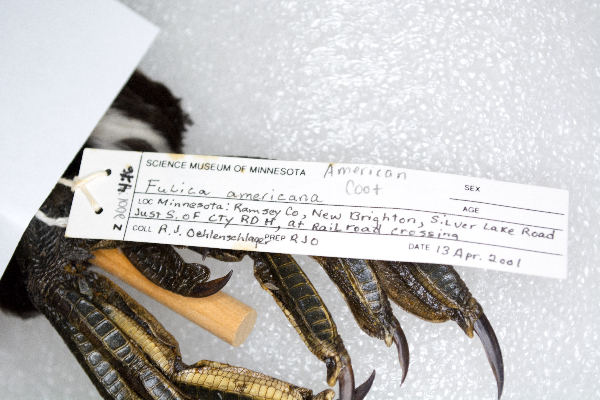 SCIENCE MUSEUM OF MINNESOTA
American
Coot
SEX
Fulica americana
AGE
LOC Minnesota: Ramsey Co, New Brighton, Silver Lake Road
Just S. of CTY RD H, at Railroad crossing
COLL R.J. Oehlenschlager PREP RJO DATE 13 Apr. 2001